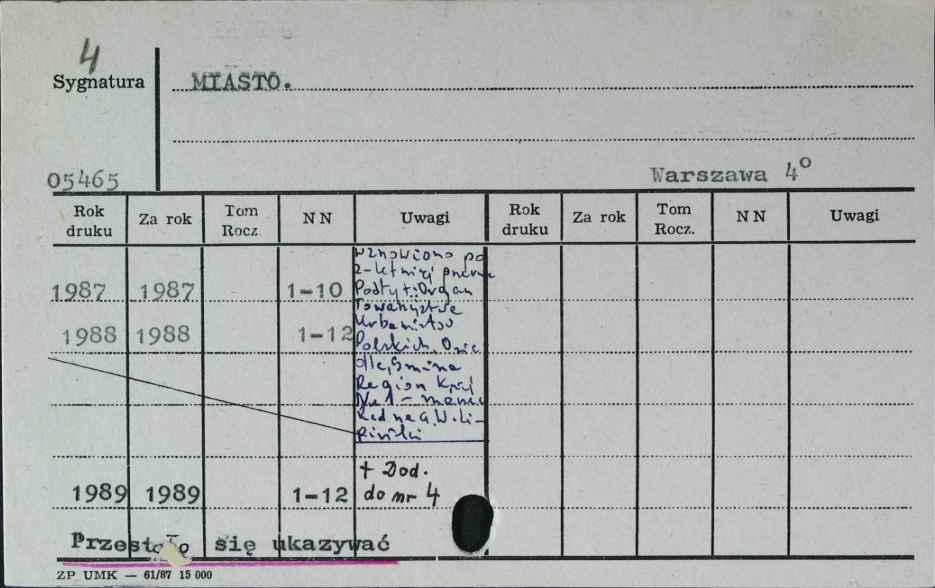 4
Sygnatura
MIASTO.
05465
Warszawa 4°
Rok druku Za rok Tom Rocz. N N Uwagi Rok druku Za rok Tom Rocz. N N Uwagi
Wznowiono po
2-letniej
1987 1987 1-10 Podtyt: Organ
Towarzystwa
Urbanistów
1988 1988 1-12 Polskich.
Gmina
Region Kraj
Nr 1 -
Red nacz W.
+ Dod.
1989 1989 1-12 do nr 4
Przestało się ukazywać
ZP UMK — 61/87 15 000